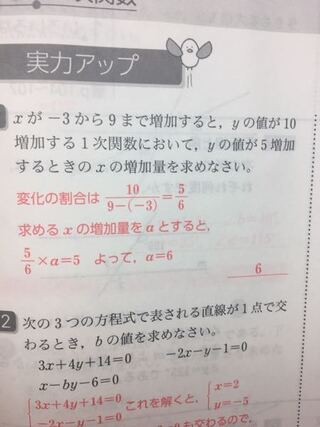 実力アップ
xが−3から9まで増加すると，yの値が10
増加する1次関数において，yの値が5増加
するときのxの増加量を求めなさい。
変化の割合は 10/9−(−3)=5/6
求めるxの増加量をaとすると，
5/6×a=5 よって，a=6
6
2 次の3つの方程式で表される直線が1点で交
わるとき，bの値を求めなさい。
3x+4y+14=0 −2x−y−1=0
x−by−6=0
{3x+4y+14=0 これを解くと，{x=2
−2x−y−1=0 y=−5